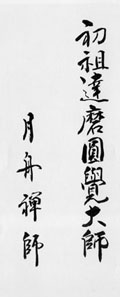 初祖達磨圓覺大師
月舟禅師